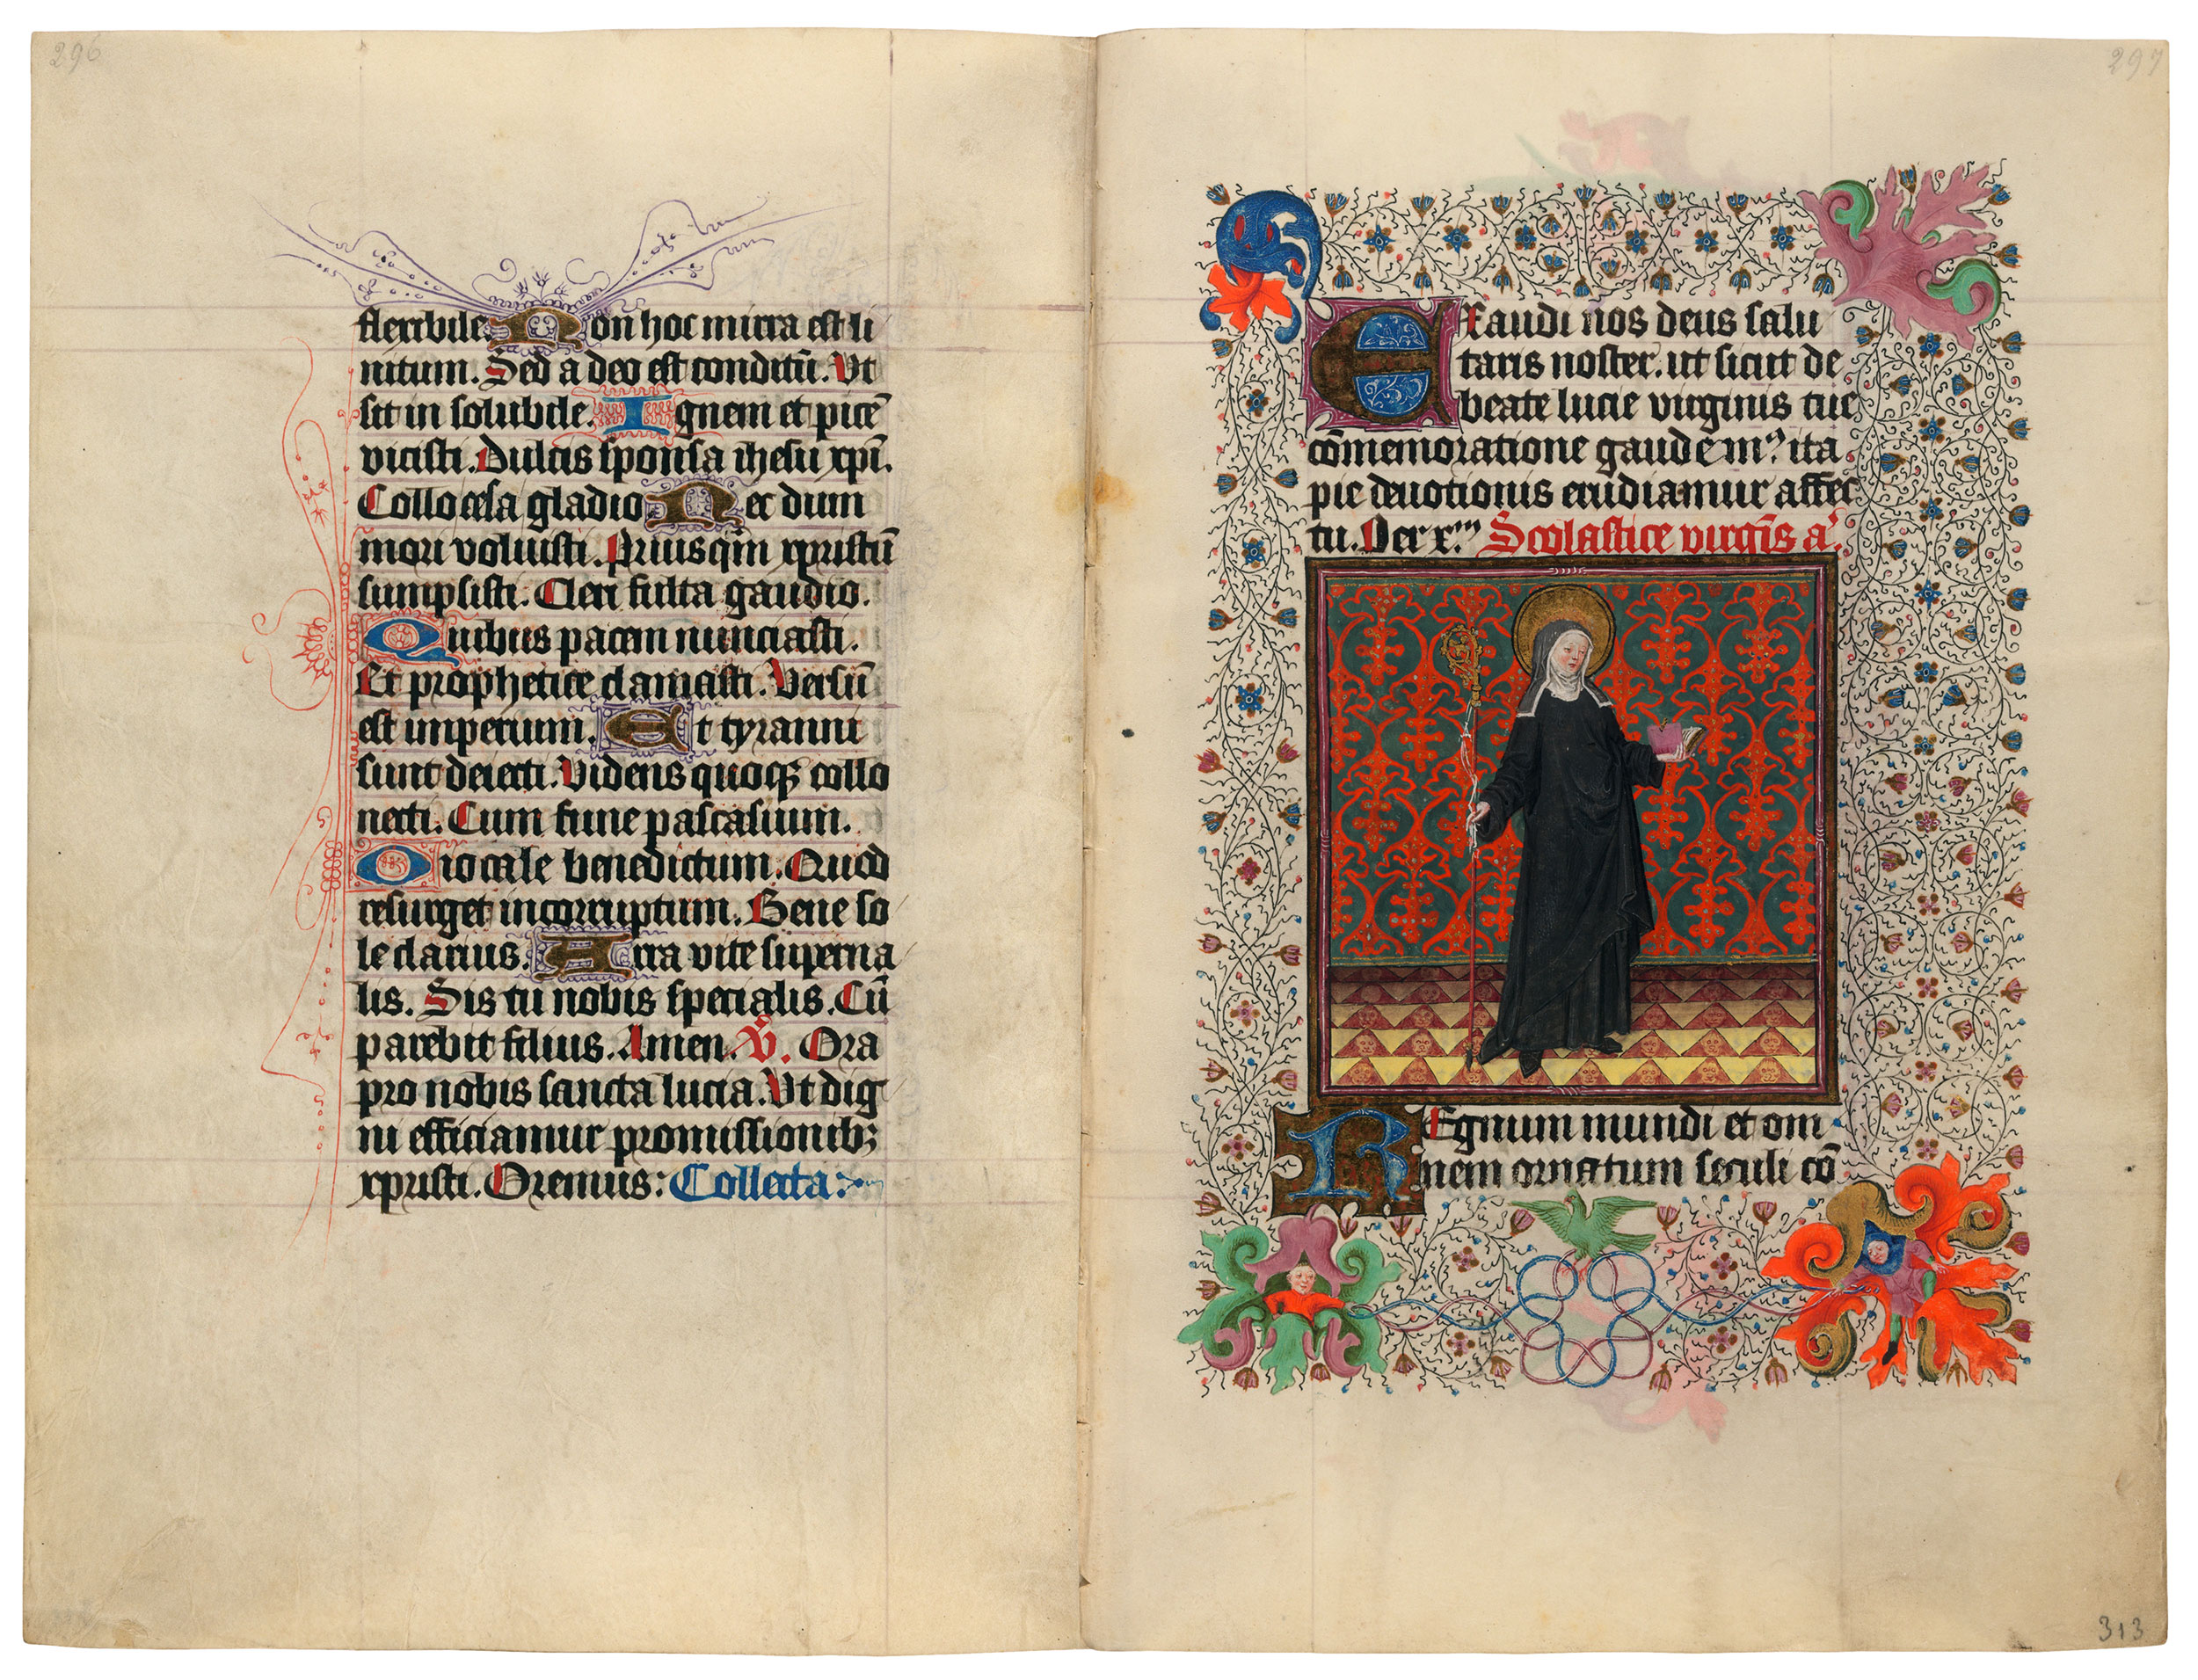 296
flexibile. Non hoc mirra est li
nitum. Sed a deo est conditū. Vt
sit in solubile. Ignem et picē
vicisti. Dulcis sponsa ihesu xpī.
Collocesa gladio Nec dum
mori voluisti. Priusqm̄ xpristū
sumpsisti. Cleri fulta gaudio.
Quibus pacem nunciasti.
Et prophetice clamasti. Versū
est imperium. Et tyranni
sunt deiecti. Videns quoqꝫ collo
necti. Cum fune pascasium.
Oiocale benedictum. Quod
resurget incorruptum. Bene so
le clarius. Arra vite superna
lis. Sis tu nobis specialis. Cū
parebit filius. Amen. V. Ora
pro nobis sancta lucia. Vt dig
ni efficiamur promissionibꝫ
xpristi. Oremus: Collecta:
297
EXaudi nos deus salu
taris noster. ut sicut de
beate lucie virginis tue
cōmemoratione gaudemꝰ ita
pie deuotionis erudiamur affec
tu. Per x. Scolastice virgīs a
REgnum mundi et om
nem ornatum seculi cō
313